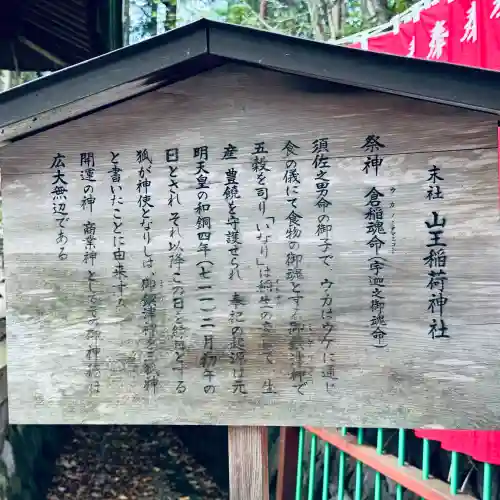 末社 山王稲荷神社
祭神 倉稲魂命(宇迦之御魂命)
ウカノミタマノミコト
須佐之男命の御子で、ウカはウケに通じ
食の儀にて食物の御魂とする御饌津神で
五穀を司り「いなり」は稲生の意で、生
産 豊饒を守護せられ 奉祀の起源は元
明天皇の和銅四年(七一一)二月初午の
日とされ それ以降この日を縁日とする
狐が神使となりしは、御饌津神を三狐神
と書いたことに由来する
開運の神 商業神としての御神徳は
広大無辺である